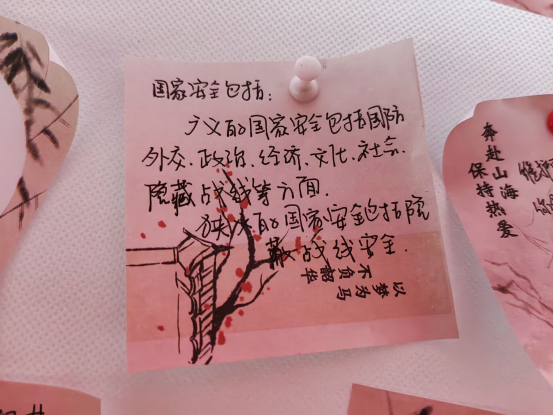 国家安全包括:
广义的国家安全包括国防
外交、政治、经济、文化、社会、
隐藏战线等方面.
狭义的国家安全包括隐
蔽战线安全.
以梦为马
不负韶华
奔赴山海
保持热爱